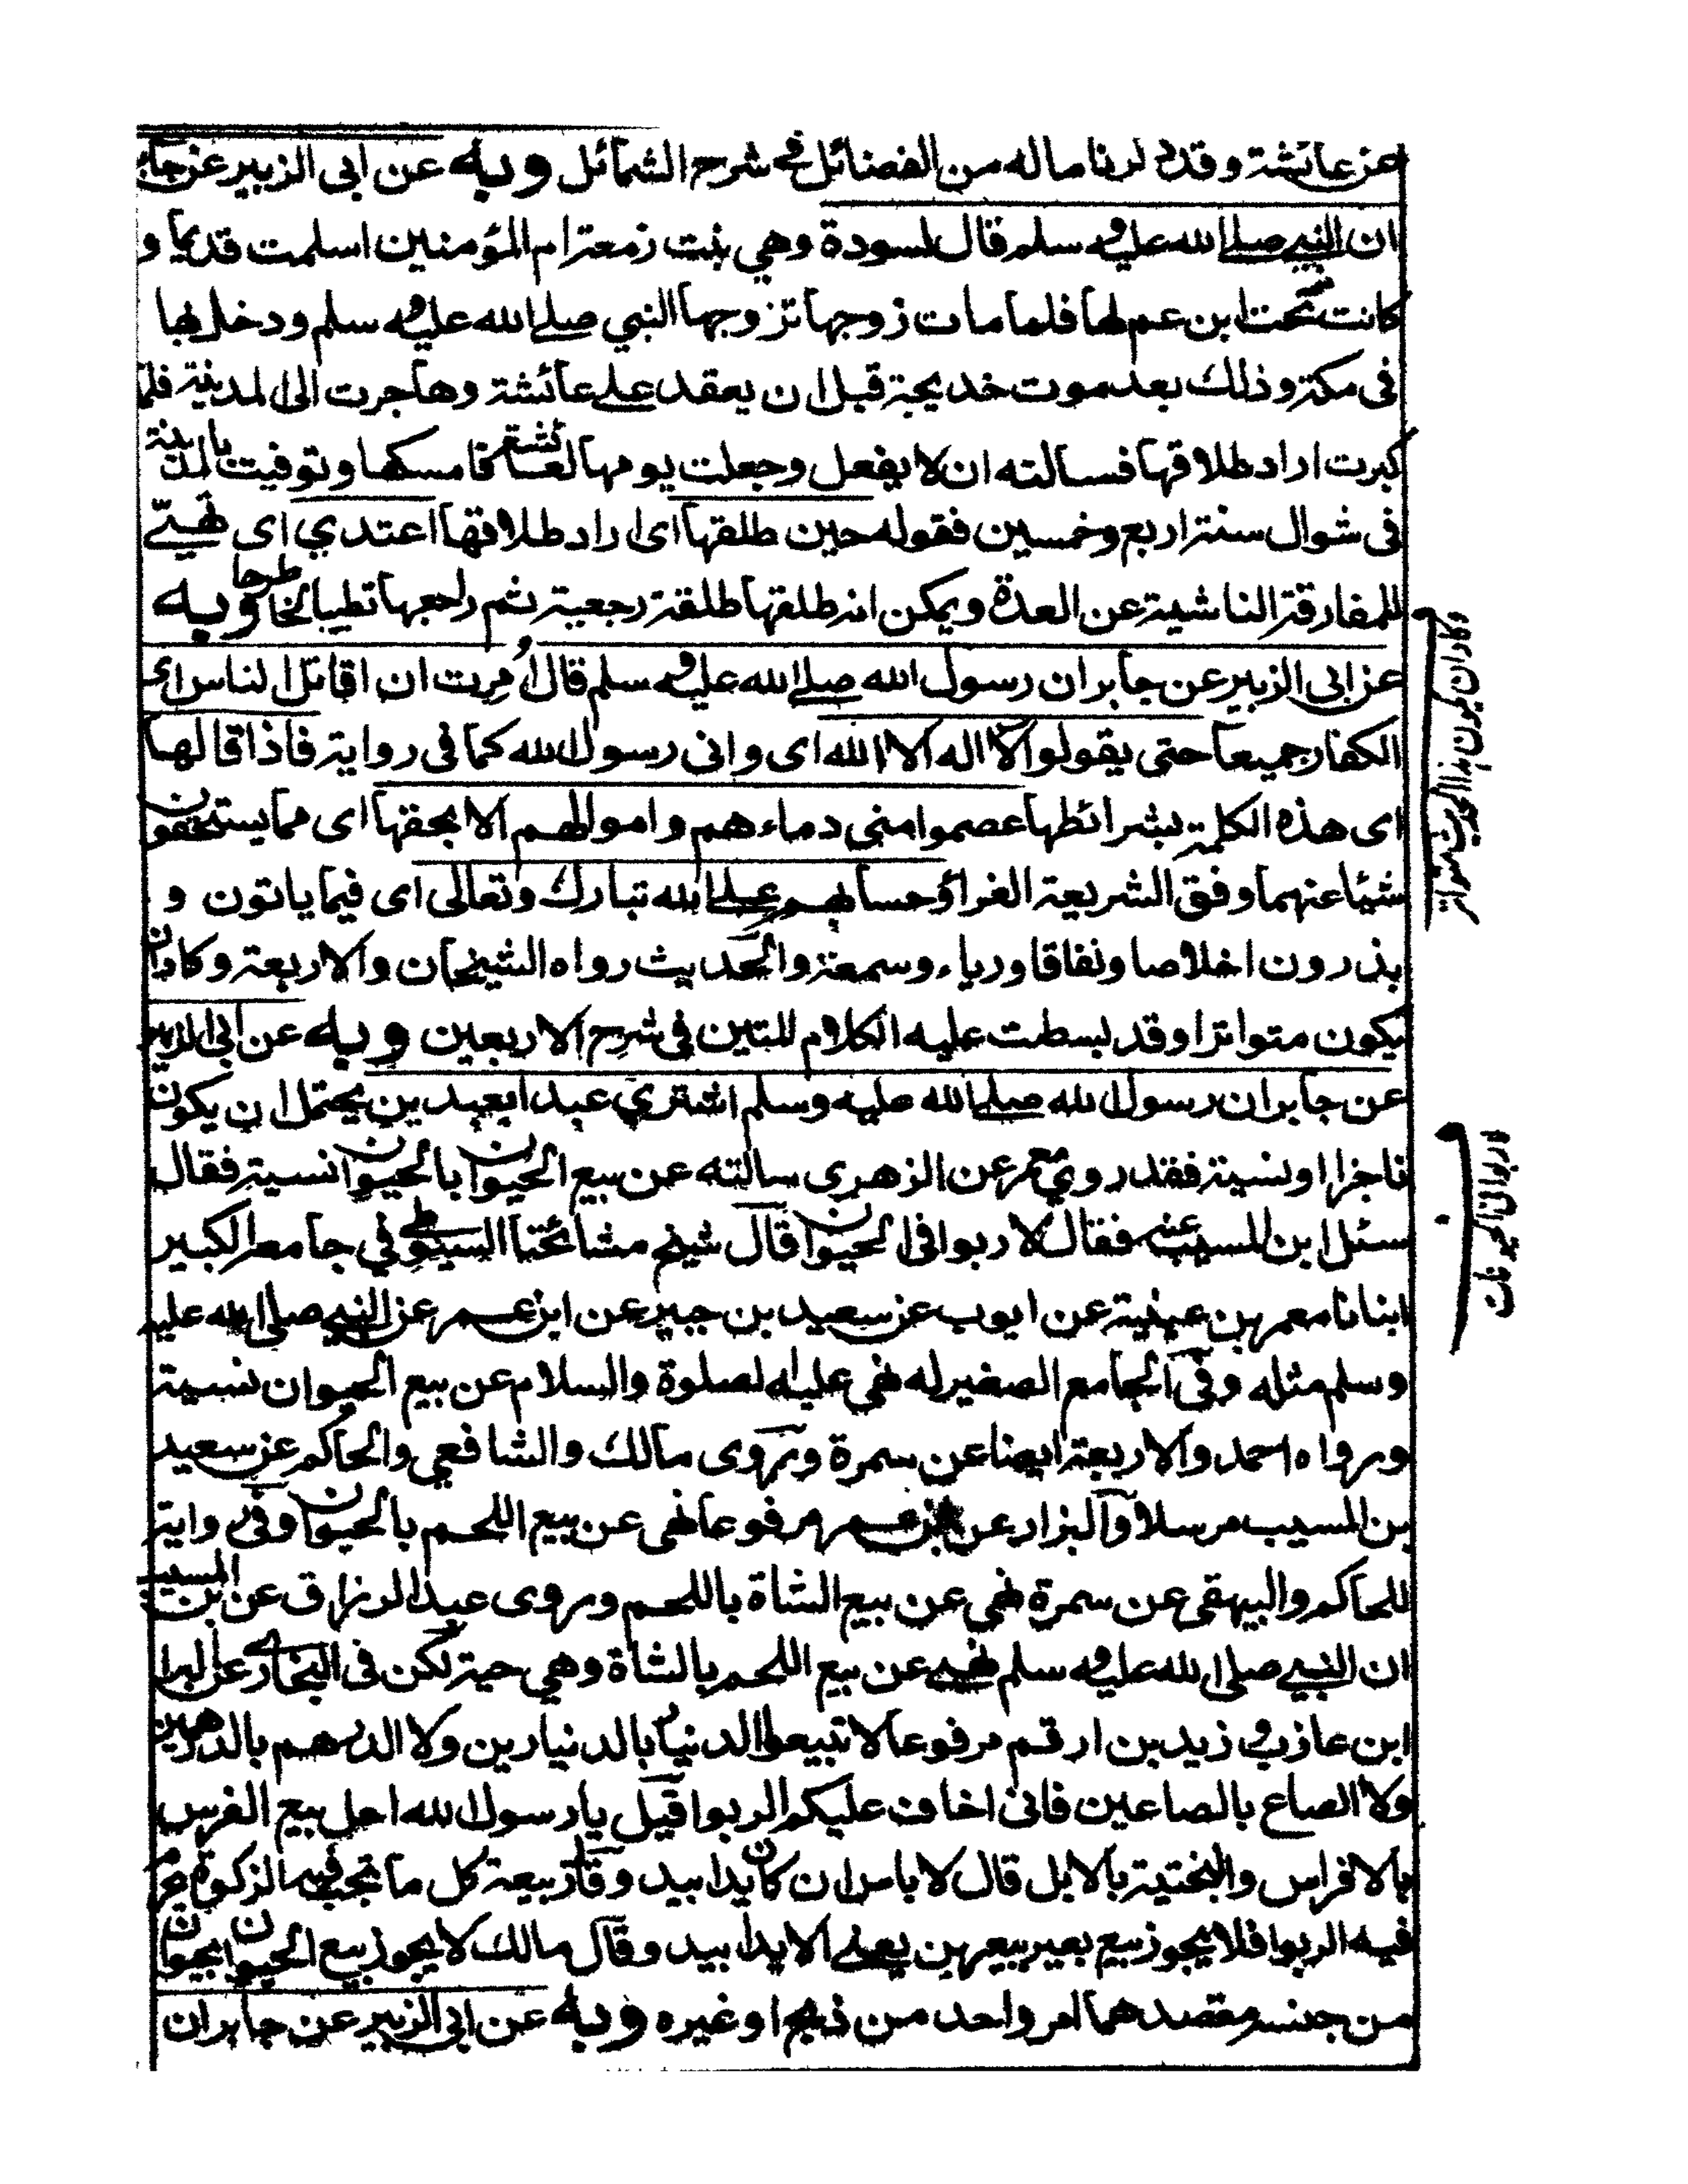 عن عائشة وقد ذكرنا ماله من الفضائل في شرح الشمائل وبه عن ابى الزبير عن جابر
ان النبي صلى الله عليه وسلم قال لسودة وهي بنت زمعة ام المؤمنين اسلمت قديما و
كانت تحت ابن عم لها فلما مات زوجها تزوجها النبي صلى الله عليه وسلم ودخل بها
فى مكة وذلك بعد موت خديجة قبل ان يعقد على عائشة وهاجرت الى المدينة فلما
كبرت اراد طلاقها فسالته ان لا يفعل وجعلت يومها لعائشة فامسكها وتوفيت بالمدينة
فى شوال سنة اربع وخمسين فقوله حين طلقها اى اراد طلاقها اعتدي اى تهيئ
للمفارقة الناشية عن العدة ويمكن انه طلقها طلقة رجعية ثم راجعها تطيبا لخاطرها وبه
عن ابى الزبير عن جابر ان رسول الله صلى الله عليه وسلم قال أمرت ان اقاتل الناس اى
الكفار جميعا حتى يقولوا لا اله الا الله اى وانى رسول الله كما فى رواية فاذا قالها
اى هذه الكلمة بشرائطها عصموا منى دماءهم واموالهم الا بحقها اى مما يستحقون
شيئا عنهما وفق الشريعة الغراؤ وحسابهم على الله تبارك وتعالى اى فيما ياتون و
يذرون اخلاصا ونفاقا ورياء وسمعة والحديث رواه الشيخان والاربعة وكاد ان
يكون متواترا وقد بسطت عليه الكلام للتبين فى شرح الاربعين وبه عن ابى الزبير
عن جابر ان رسول الله صلى الله عليه وسلم اشتري عبدا بعبدين يحتمل ان يكون
ناجزا او نسية فقد روي معمر عن الزهرى سالته عن بيع الحيوان بالحيوان نسية فقال
سئل ابن المسيب عنه فقال لا ربوا فى الحيوان قال شيخ مشائخنا السيوطي في جامعه الكبير
انبانا معمر بن عيينية عن ايوب عن سعيد بن جبير عن ابن عمر عن النبي صلى الله عليه
وسلم مثله وفى الجامع الصغير له نهي عليه الصلوة والسلام عن بيع الحيوان نسية
ورواه احمد والاربعة ايضا عن سمرة وروى مالك والشافعي والحاكم عن سعيد
بن المسيب مرسلا والبزار عن ابن عمر مرفوعا نهى عن بيع اللحم بالحيوان وفى رواية
للحاكم والبيهقى عن سمرة نهي عن بيع الشاة باللحم وروى عبد الرزاق عن بن المسيب
ان النبي صلى الله عليه وسلم نهى عن بيع اللحم بالشاة وهي حية لكن فى البخارى عن البراء
ابن عازب و زيد بن ارقم مرفوعا لا تبيعوا الدنيار بالدنيارين ولا الدرهم بالدرهمين
ولا الصاع بالصاعين فانى اخاف عليكم الربوا قيل يا رسول الله احل بيع الفرس
بالافراس والبختية بالابل قال لا باس ان كان يدا بيد وقال ربيعة كل ما تجب فيه الزكوة حرم
فيه الربوا فلا يجوز بيع بعير ببعيرين يعنى الا يدا بيد وقال مالك لا يجوز بيع الحيوان بحيوان
من جنسه مقصدهما امر واحد من ذبح او غيره وبه عن ابى الزبير عن جابر ان
وكاد ان يكون هذا الحديث متواتر
لا ربوا فى الحيوانات